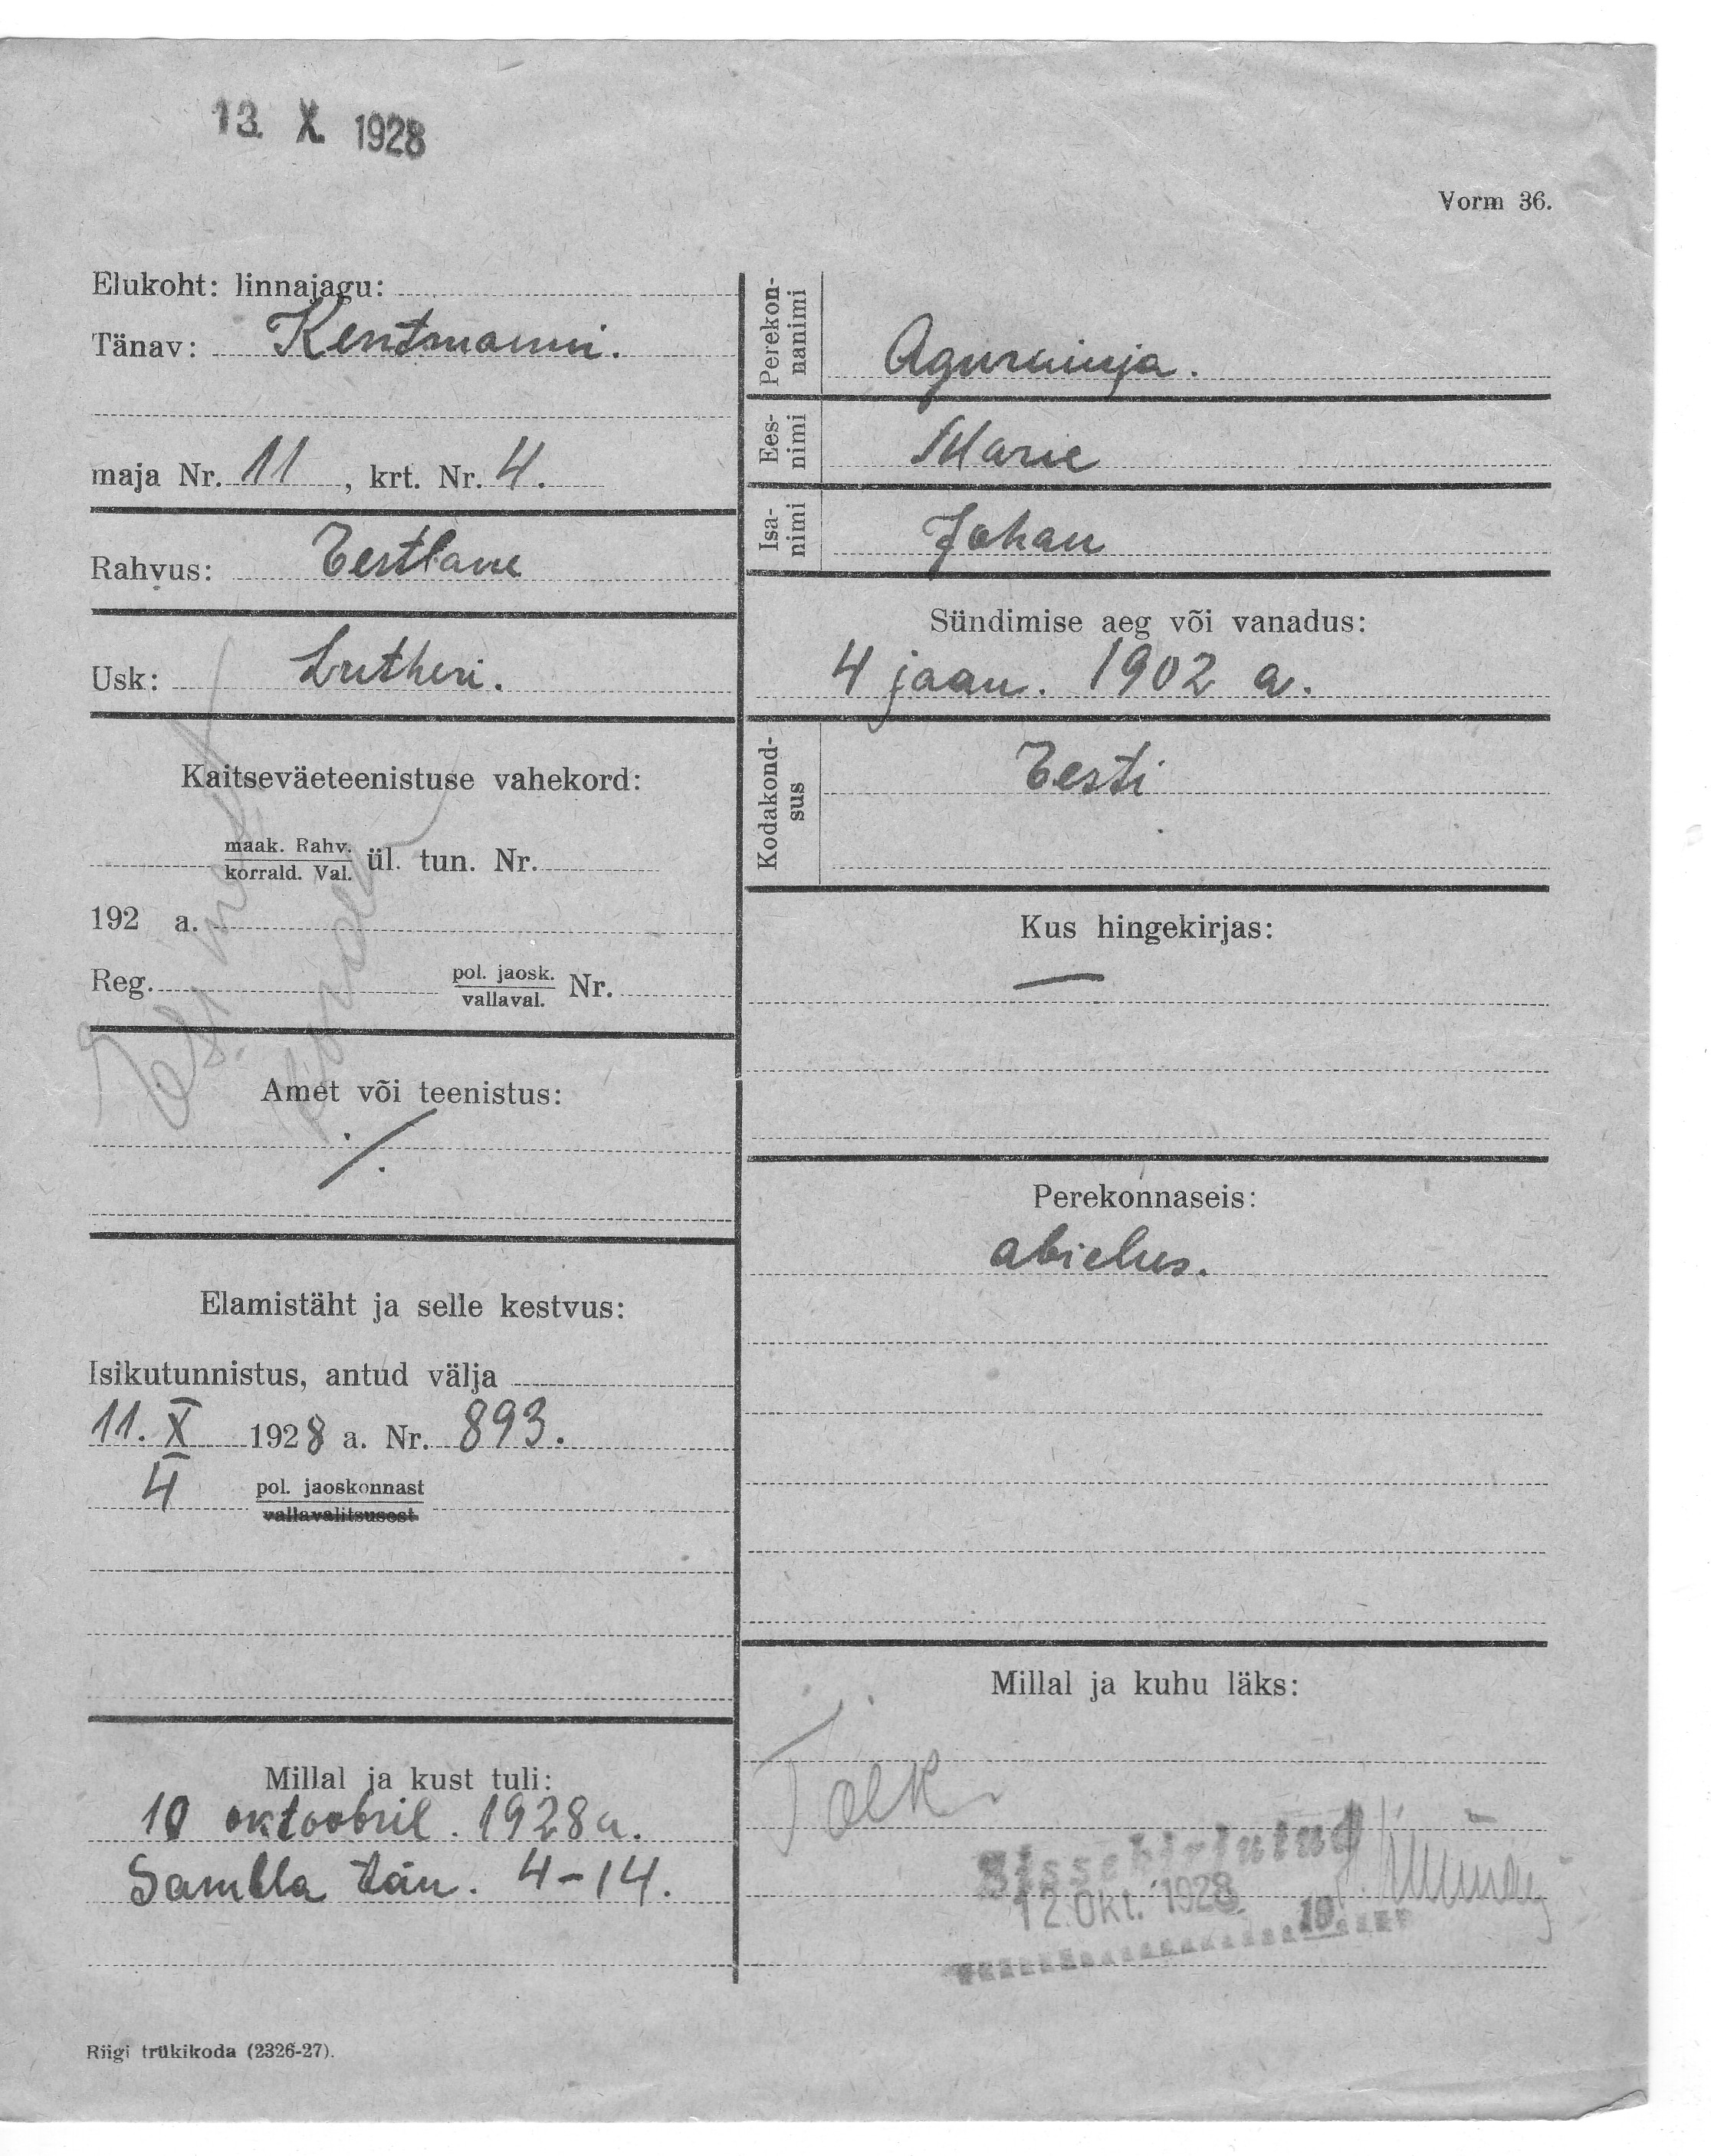 13. X. 1928
Vorm 36.
Elukoht: linnajagu:
Tänav: Kentmanni.
maja Nr. 11, krt. Nr. 4.
Rahvus: Eestlane
Usk: Lutheri.
Kaitseväeteenistuse vahekord:
maak. Rahv.
korrald. Val. ül. tun. Nr.
192 a.
Reg. pol. jaosk.
vallaval. Nr.
Amet või teenistus:
Elamistäht ja selle kestvus:
Isikutunnistus, antud välja
11. X 1928 a. Nr. 893.
4 pol. jaoskonnast
vallavalitsusest
Millal ja kust tuli:
10 oktoobril. 1928 a.
Sambla tän. 4-14.
Riigi trükikoda (2326-27).
Perekon-
nanimi
Aguraiuja.
Ees-
nimi
Marie
Isa-
nimi
Johan
Sündimise aeg või vanadus:
4 jaan. 1902 a.
Kodakond-
sus
Eesti
Kus hingekirjas:
—
Perekonnaseis:
abielus.
Millal ja kuhu läks:
Sissekirjutud
12. Okt. 1928
19